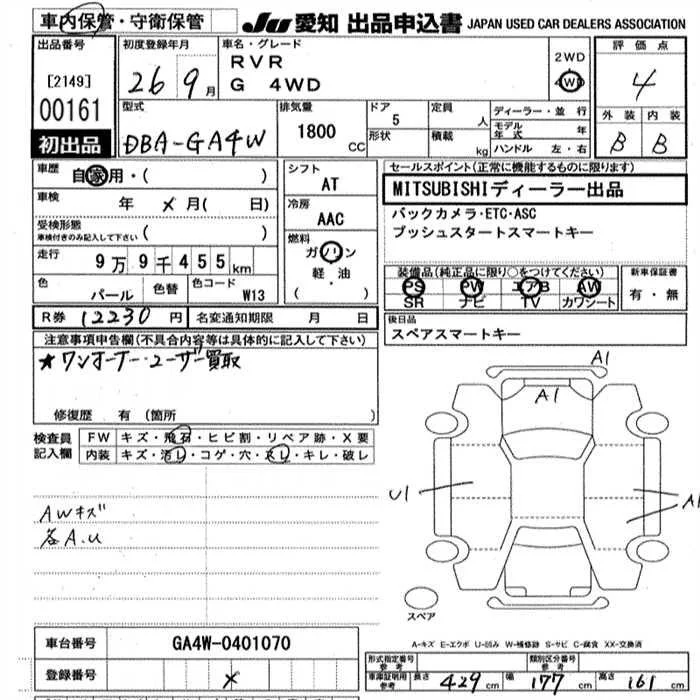 車内保管・守衛保管 JU 愛知 出品申込書 JAPAN USED CAR DEALERS ASSOCIATION
出品番号 初度登録年月 車名・グレード 評価点
[2149] 26 9月 RVR 2WD
G 4WD 4WD 4
00161 型式 排気量 ドア 定員 ディーラー・並行 外装 内装
初出品 DBA-GA4W 1800 CC 5 人 モデル年式 年 B B
形状 積載 kg ハンドル 左・右
車歴 自家用・( ) シフト セールスポイント(正常に機能するものに限ります)
AT MITSUBISHIディーラー出品
車検 年 ×月( 日) 冷房 バックカメラ・ETC・ASC
受検形態 AAC プッシュスタートスマートキー
車検付きのみ記入して下さい ( )
走行 9万9千455km 燃料 ガソリン 軽・油 ・( ) 装備品(純正品に限り○をつけてください) 新車保証書
色 パール 色替 色コード W13 PS PW エアB AW 有・無
SR ナビ TV カワシート
R券 12230円 名変通知期限 月 日 後日品
スペアスマートキー
注意事項申告欄(不具合内容等は具体的に記入して下さい)
★ワンオーナー・ユーザー買取
修復歴 有(箇所
検査員記入欄 FW キズ・飛石・ヒビ割・リペア跡・X要
内装 キズ・汚レ・コゲ・穴・スレ・キレ・破レ
A1
A1
U1
A1
A1
AWキズ
各A.U
スペア
A-キズ E-エクボ U-凹み W-補修跡 S-サビ C-腐食 XX-交換済
車台番号 GA4W-0401070
登録番号 ×
形式指定番号 参考 類別区分番号 参考
車庫証明用参考 長さ 429 cm 幅 177 cm 高さ 161 cm